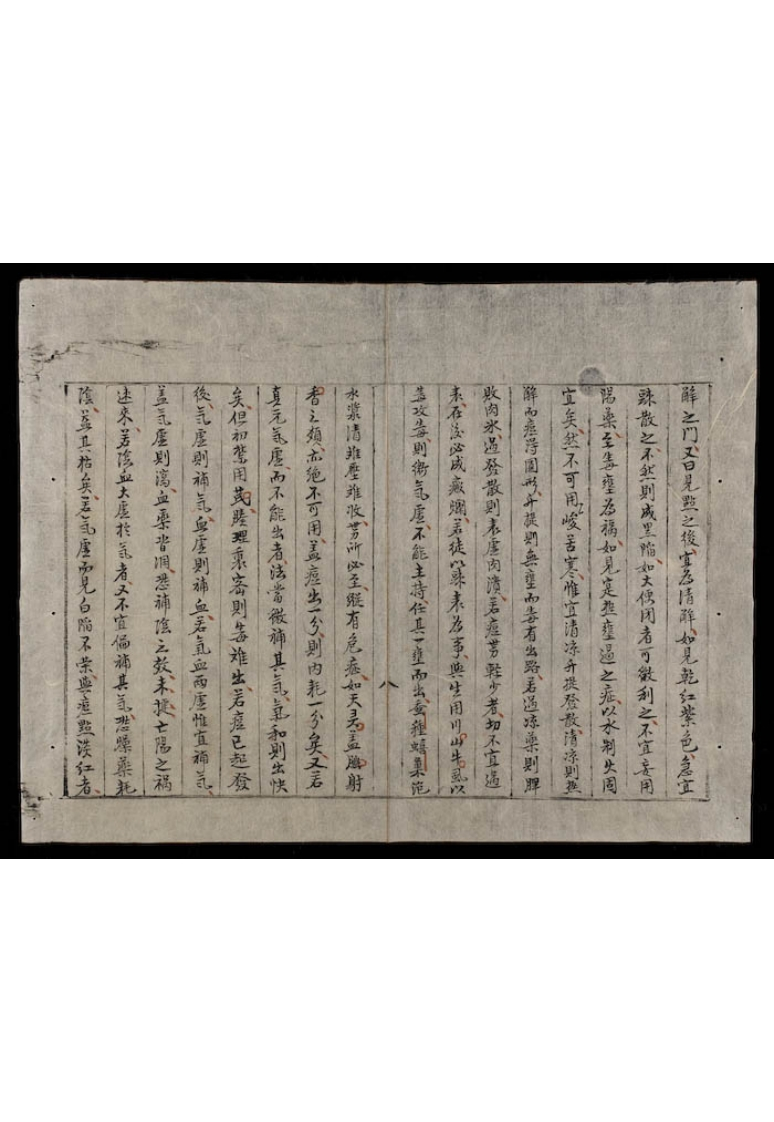 解之門又曰見點之後宜為清解如見乾紅紫色急宜
踈散之不然則成黑陷如大便閉者可微利之不宜妄用
陽藥至毒壅為禍如見寔熱壅遏之症以水制火固
宜矣然不可用峻苦寒惟宜清凉升提發散清凉則熱
解而痘淂圓形升提則無壅而毒有出路若過凉藥則脾
敗肉氷過發散則表虛肉潰若痘苗乾少者切不宜過
表在後必成癍爛若徒以踈表為事與生用川山牛風以
毒攻毒則衛氣虛不能主持任其一壅而出蚕種蟢窠疮
水漿清难壓难收势所必至縱有危症如天灵盖腦射
香之類亦絶不可用盖痘出一分則内耗一分矣又若
真元氣虛而不能出者法當微補其氣氣和則出快
矣但初禁用芪腠理裏密則毒难出若痘已起發
後氣虛則補氣血虛則補血若氣血兩虛惟宜補氣
盖氣虛則瀉血藥皆潤恐補陰之效未捷亡陽之禍
速來若陰血大虛扵氣者又不宜偏補其氣恐燥藥耗
陰盖其枯矣若氣虛而見白陷不荣與痘點淡紅者
八